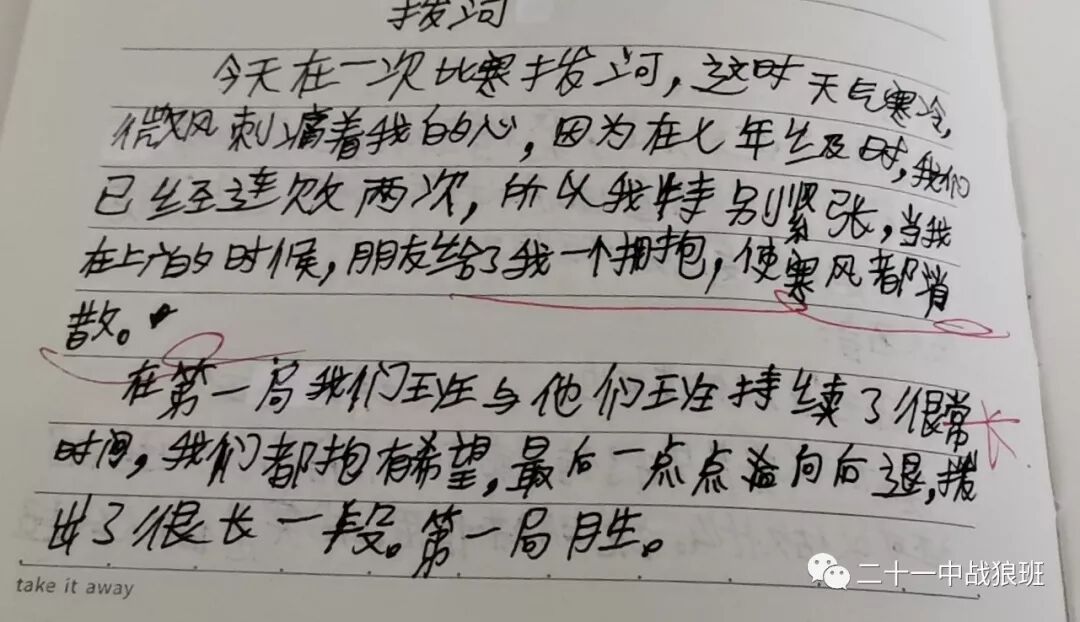 拨河
今天在一次比寒拨河，这时天气寒冷，
微风刺痛着我的心，因为在七年级时，我们
已经连败两次，所以我特别紧张，当我
在上台的时候，朋友给了我一个拥抱，使寒风都消
散。
在第一局我们班与他们班持续了很常长
时间，我们都抱有希望，最后一点点向后退，拨
出了很长一段。第一局胜。
take it away
二十一中战狼班